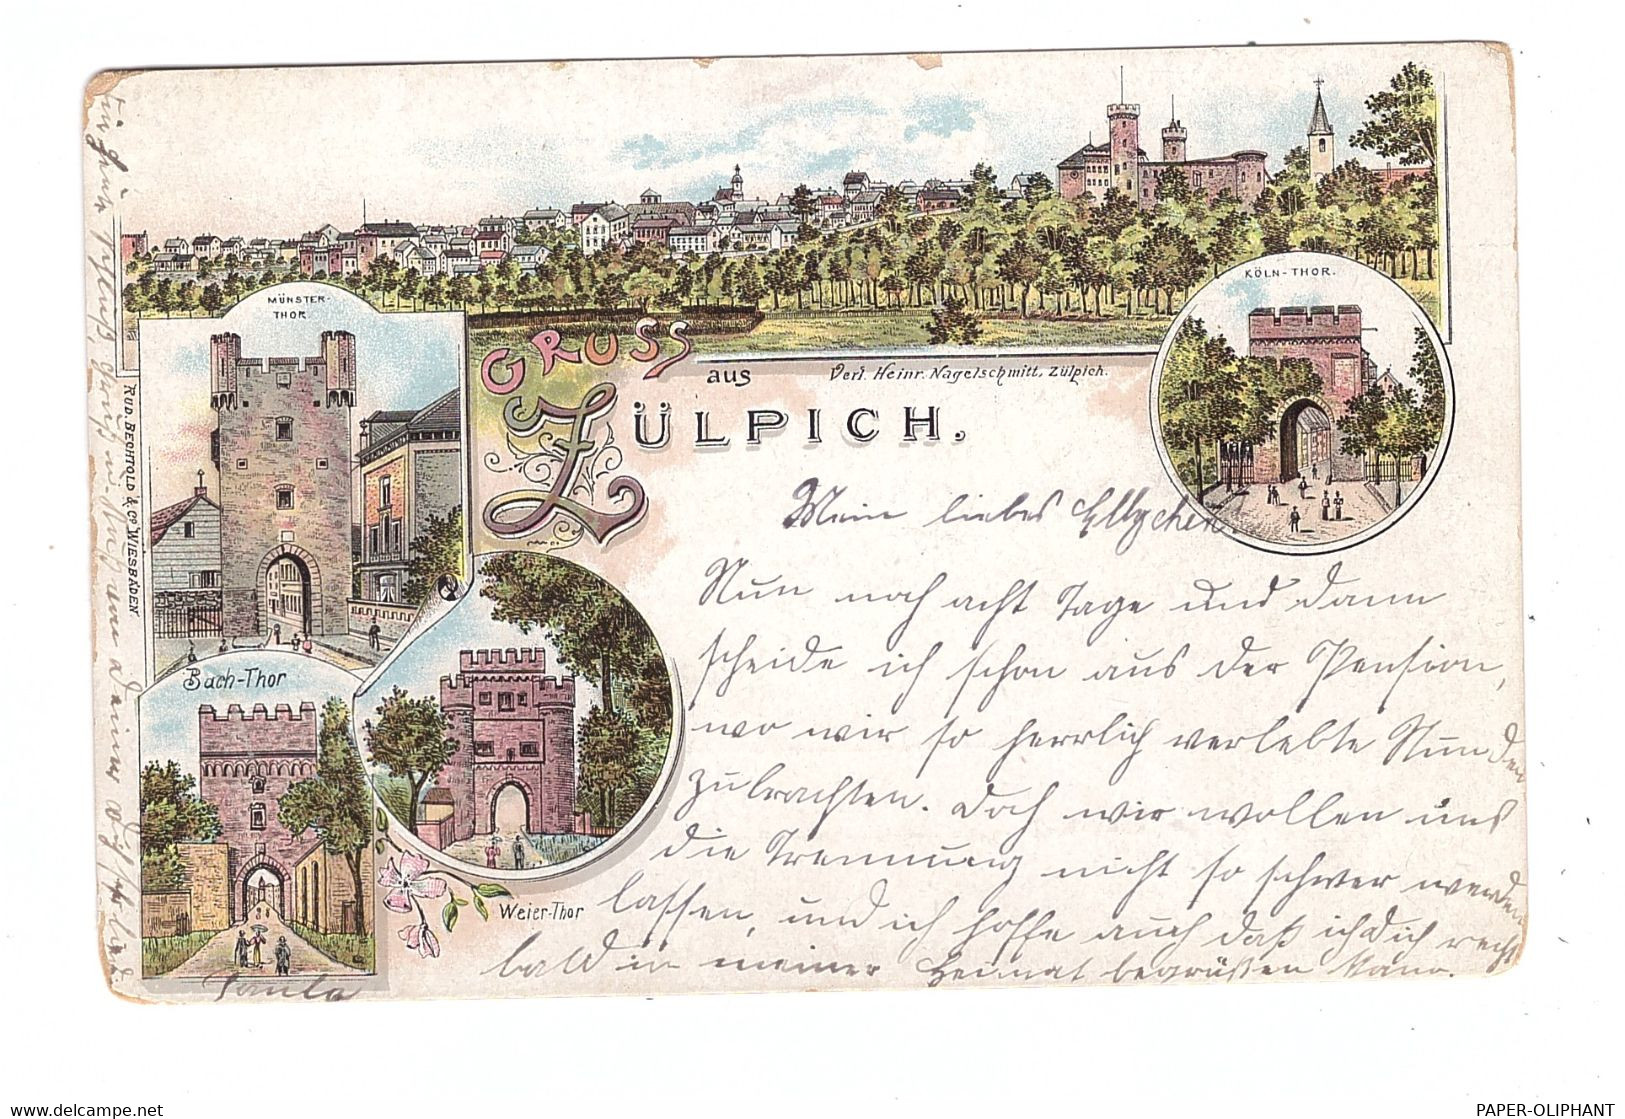 MÜNSTER-
THOR.
KÖLN-THOR.
GRUSS
aus
Verl. Heinr. Nagelschmitt, Zülpich.
ZÜLPICH.
RUD. BECHTOLD & Co. WIESBADEN
Bach-Thor
Weier-Thor
Mein liebes Ellychen
Nun noch acht Tage und dann
scheide ich schon aus der Pension,
wo wir so herrlich verlebte Stunden
zubrachten. Doch wir wollen uns
die Trennung nicht so schwer werden
lassen, und ich hoffe auch daß ich Dich recht
bald in meiner Heimat begrüßen kann.
Paula
PAPER-OLIPHANT
www.delcampe.net